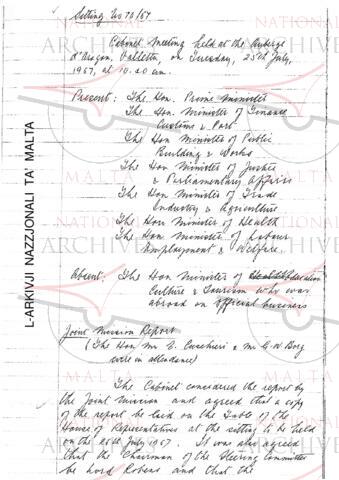 Sitting No 70/67
Cabinet Meeting held at the Auberge
d'Aragon, Valletta, on Tuesday, 25th July,
1967, at 10.20 am.
Present: The Hon. Prime Minister
The Hon. Minister of Finance
Customs & Port
The Hon Minister of Public
Building & Works
The Hon Minister of Justice
& Parliamentary Affairs
The Hon Minister of Trade
Industry & Agriculture
The Hon Minister of Health
The Hon Minister of Labour
Employment & Welfare.
Absent: The Hon Minister of Education
Culture & Tourism who was
abroad on official business
Joint Mission Report
(The Hon Mr E. Cuschieri & Mr G. W Borg
were in attendance)
The Cabinet considered the report by
the Joint Mission and agreed that a copy
of the report be laid on the Table of the
House of Representatives at the sitting to be held
on the 26th July 1967. It was also agreed
that the Chairman of the Steering Committee
be Lord Robens and that the
L-ARKIVJI NAZZJONALI TA' MALTA
NATIONAL
ARCHIVES
MALTA